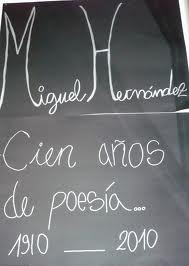 Miguel Hernández
Cien años
de poesía...
1910 __ 2010